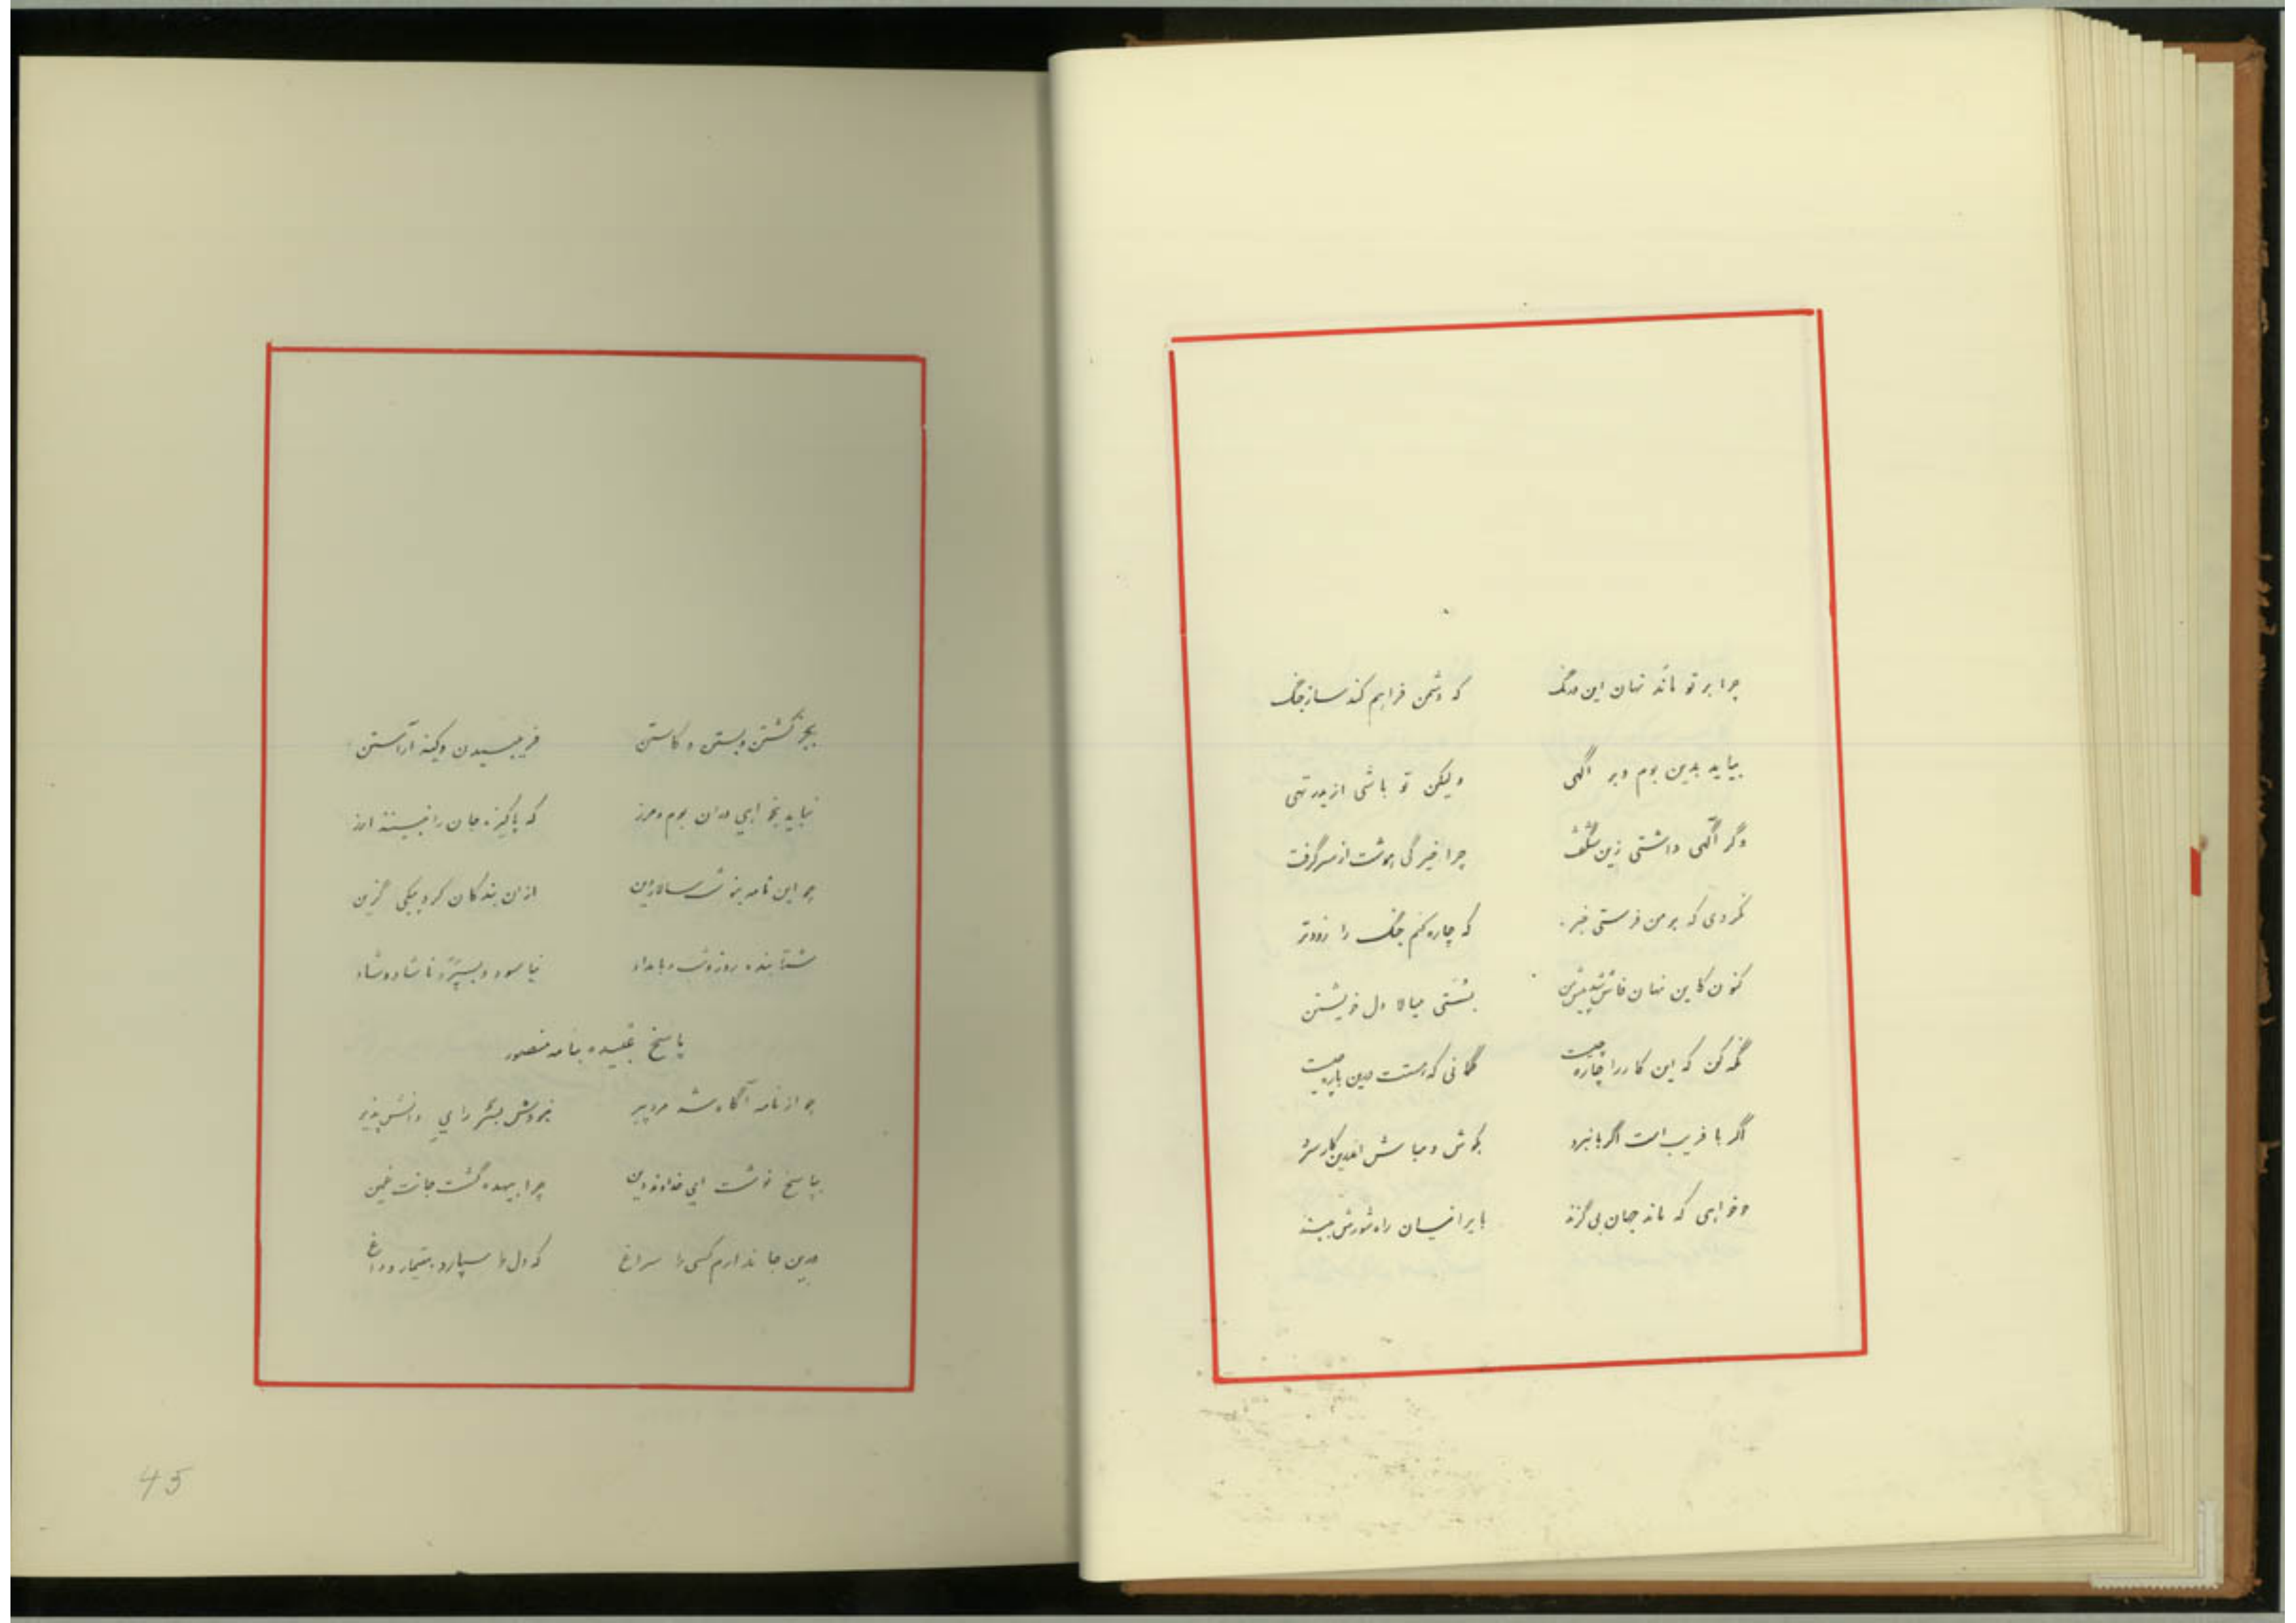 چرا بر تو ماند نهان این درنگ که دشمن فراهم کند ساز جنگ
بیاید بدین بوم و بر آگهی ولیکن تو باشی ازیدر تهی
وگر آگهی داشتی زین شگفت چرا خیرگی هوشت از سر گرفت
نکردی که بر من فرستی خبر که چاره کنم جنگ را زودتر
کنون کاین نهان فاش شد پیش من بسستی میالا دل خویشتن
نگه کن که این کار را چاره چیست گمانی که هستت درین باره چیست
اگر با فریب است اگر با نبرد بکوش و مباش اندرین کار سرد
وخواهی که ماند جهان بی گزند بایرانیان راه شورش ببند
بجز کشتن و بستن و کاستن فریبیدن و کینه آراستن
نباید بخواهی دران بوم ومرز که پاکیزه جان را ببینند ارز
چو این نامه بنوشت سالار دین ازان بندگان کرد پیکی گزین
شتابنده روز و شب و بامداد نیاسود و بسپرد ناشاد و شاد
پاسخ عبیده بنامه منصور
چو از نامه آگاه شد مرد پیر بجوشش بشد رای دانش پذیر
بپاسخ نوشت ای خداوند دین چرا بیهده گشت جانت غمین
درین جا ندارم کسی را سراغ که دل را سپارد بتیمار و داغ
45